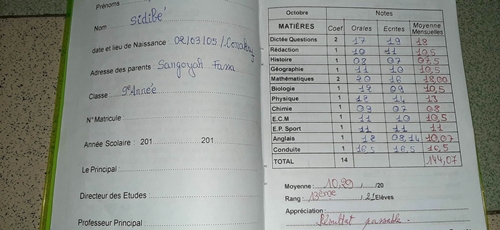 Prénoms
Nom Sidibé
date et lieu de Naissance : 02/03/05 / Conakry
Adresse des parents : Sangoyah Fassa
Classe : 9e Année
N° Matricule
Année Scolaire : 201 201
Le Principal
Directeur des Etudes :
Professeur Principal
Octobre Notes
MATIÈRES Coef Orales Ecrites Moyenne Mensuelles
Dictée Questions 2 17 19 18
Rédaction 1 10 11 10,5
Histoire 1 08 07 07,5
Géographie 1 11 10 10,5
Mathématiques 2 20 16 18,00
Biologie 1 12 09 10,5
Physique 1 12 14 13
Chimie 1 09 07 08
E.C.M 1 11 10 10,5
E.P. Sport 1 11 11 11
Anglais 1 12 08,14 10,07
Conduite 1 16,5 16,5 16,5
TOTAL 14 144,07
Moyenne : 10,29 /20
Rang : 12ème / 21 Elèves
Appréciation :
Résultat passable.